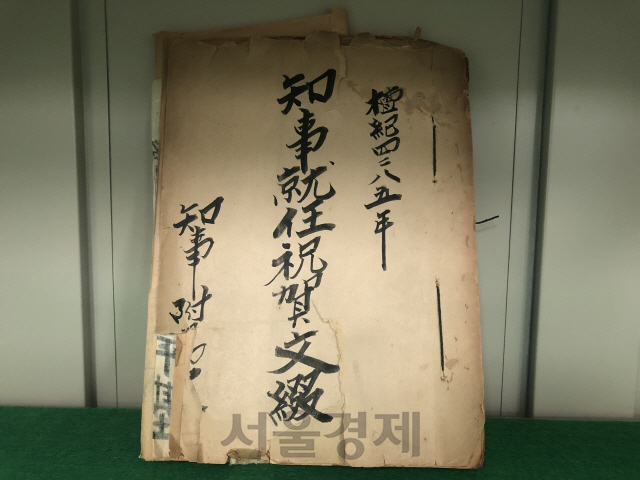 檀紀四二八五年
知事就任祝賀文綴
知事 附
서울경제